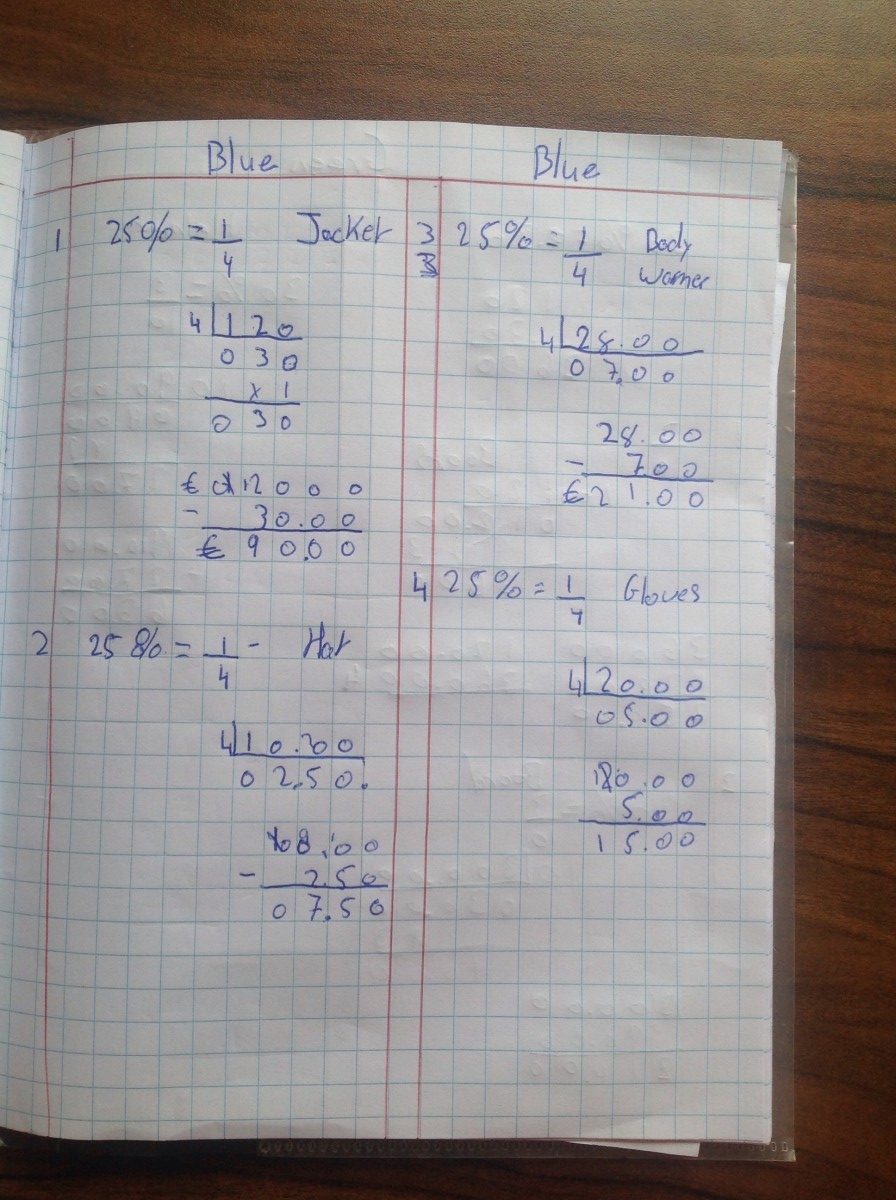 Blue
1 25% = 1/4 Jacket
4 120
030
x 1
030
€ 120 00
- 30.00
€ 90.00
2 25% = 1/4 - Hat
4 10.00
02.50.
- 2.50
07.50
Blue
3 25% = 1/4 Body
warmer
4 28.00
07.00
28.00
- 7.00
€ 21.00
4 25% = 1/4 Gloves
4 20.00
05.00
5.00
15.00